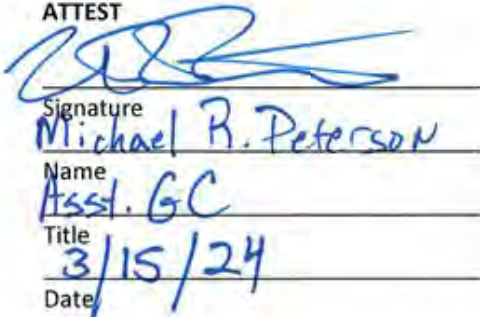 ATTEST
Signature
Michael R. Peterson
Name
Asst. GC
Title
3/15/24
Date